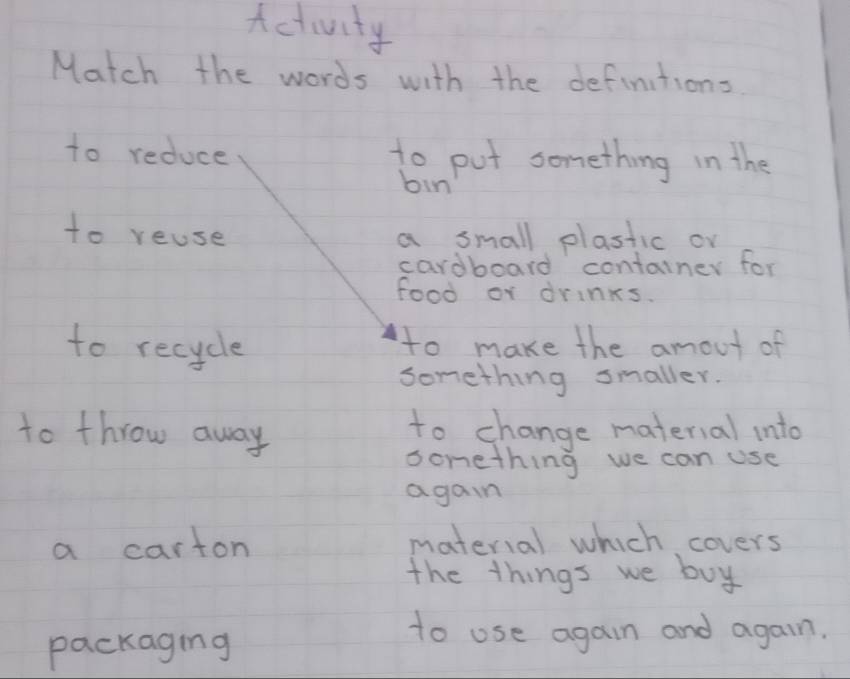 Activity
Match the words with the definitions
to reduce
to put something in the
bin
to reuse
a small plastic or
cardboard container for
food or drinks.
to recycle
to make the amout of
something smaller.
to throw away
to change material into
something we can use
again
a carton
material which covers
the things we buy
packaging
to use again and again.